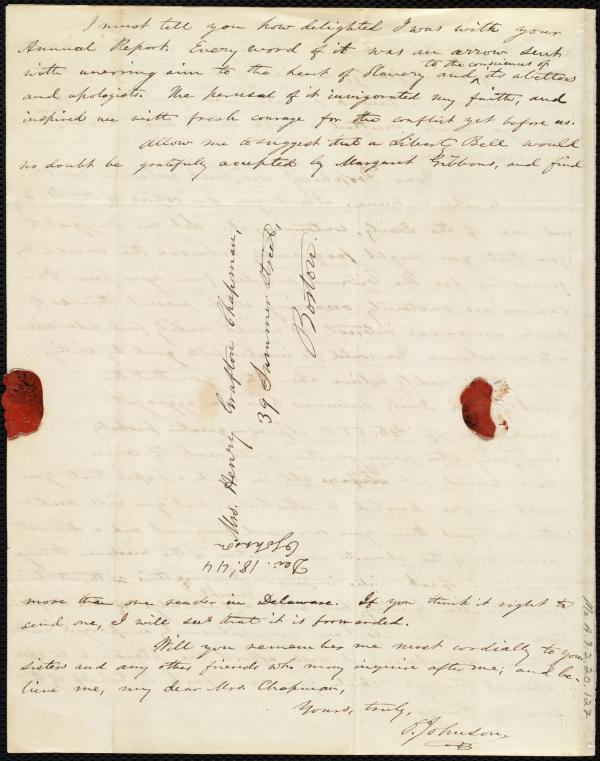 I must tell you how delighted I was with your
Annual Report. Every word of it was an arrow sent
to the consciences of
with unerring aim to the heart of Slavery and ^ its abettors
and apologists. The perusal of it invigorated my faith, and
inspired me with fresh courage for the conflict yet before us.
Allow me to suggest that a Liberty Bell would
no doubt be gratefully accepted by Margaret Gibbons, and find
Mrs. Henry Grafton Chapman,
39 Summer Street,
Boston.
Johnson
Dec. 18, '44
more than one reader in Delaware. If you think it right to
send one, I will see that it is forwarded.
Will you remember me most cordially to your
sisters and any other friends who may inquire after me; and be-
lieve me, my dear Mrs. Chapman,
Yours, truly,
O. Johnson.
Ms.A.9.2.20.122